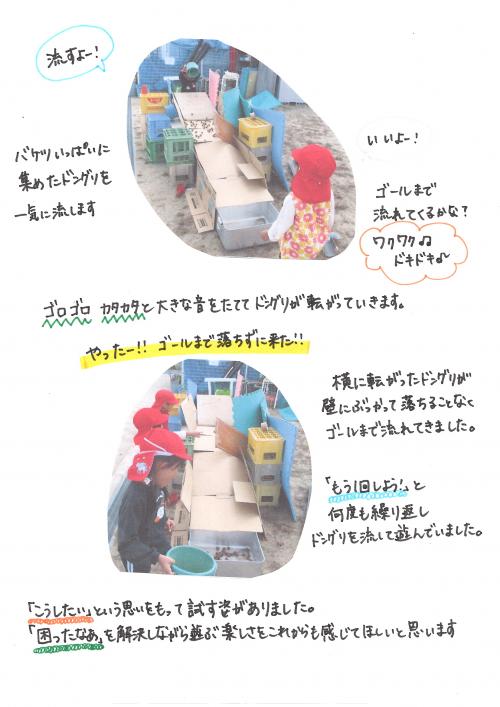 流すよー!
いいよー!
バケツいっぱいに
集めたドングリを
一気に流します
ゴールまで
流れてくるかな?
ワクワク♫
ドキドキ♪
ゴロゴロ カタカタと大きな音をたててドングリが転がっていきます。
やったー!! ゴールまで落ちずに来た!!
横に転がったドングリが
壁にぶつかって落ちることなく
ゴールまで流れてきました。
「もう1回しよう!」と
何度も繰り返し
ドングリを流して遊んでいました。
「こうしたい」という思いをもって試す姿がありました。
「困ったなあ」を解決しながら遊ぶ楽しさをこれからも感じてほしいと思います